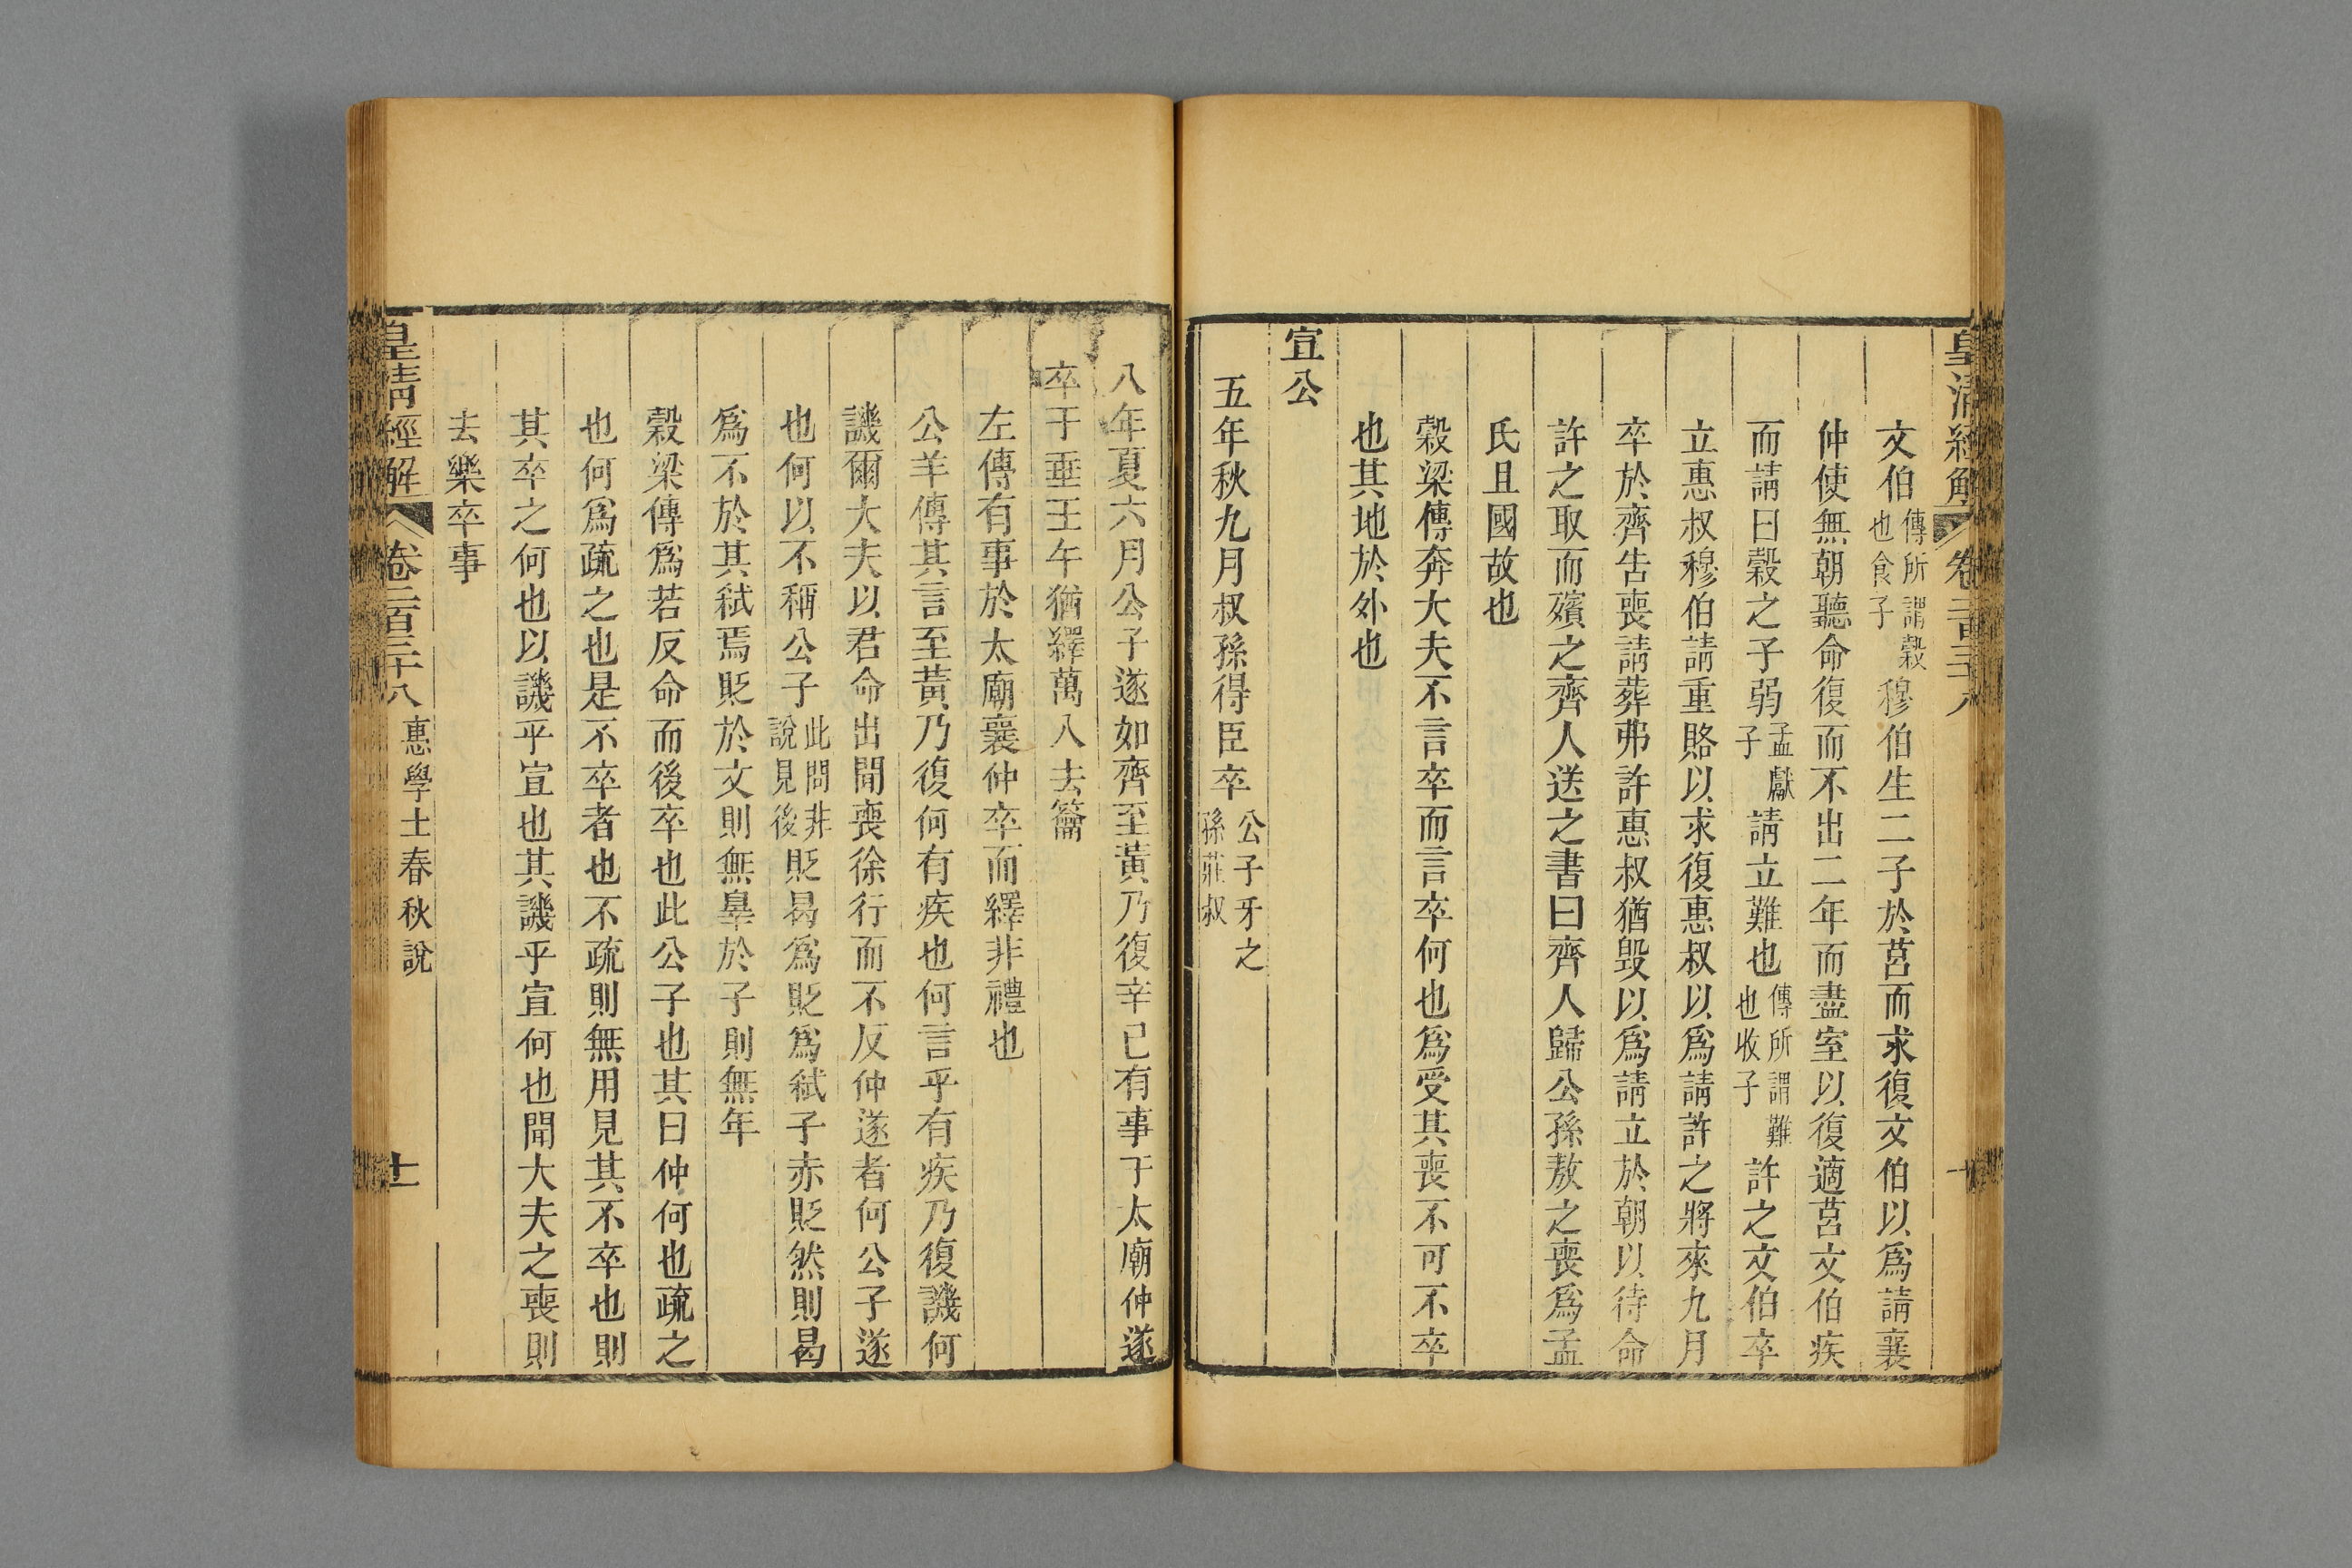 皇清經解 卷二百三十八
文伯傳所謂穀也食子穆伯生二子於莒而求復文伯以爲請襄
仲使無朝聽命復而不出二年而盡室以復適莒文伯疾
而請曰穀之子弱孟獻子請立難也傳所謂難也收子許之文伯卒
立惠叔穆伯請重賂以求復惠叔以爲請許之將來九月
卒於齊告喪請葬弗許惠叔猶毀以爲請立於朝以待命
許之取而殯之齊人送之書曰齊人歸公孫敖之喪爲孟
氏且國故也
穀梁傳奔大夫不言卒而言卒何也爲受其喪不可不卒
也其地於外也
宣公
五年秋九月叔孫得臣卒公子牙之孫莊叔
八年夏六月公子遂如齊至黃乃復辛巳有事于太廟仲遂
卒于垂壬午猶繹萬入去籥
左傳有事於太廟襄仲卒而繹非禮也
公羊傳其言至黃乃復何有疾也何言乎有疾乃復譏何
譏爾大夫以君命出聞喪徐行而不反仲遂者何公子遂
也何以不稱公子此問非說見後貶曷爲貶爲弒子赤貶然則曷
爲不於其弒焉貶於文則無辠於子則無年
穀梁傳爲若反命而後卒也此公子也其曰仲何也疏之
也何爲疏之也是不卒者也不疏則無用見其不卒也則
其卒之何也以譏乎宣也其譏乎宣何也聞大夫之喪則
去樂卒事
皇清經解 卷二百三十八 惠學士春秋說 十一